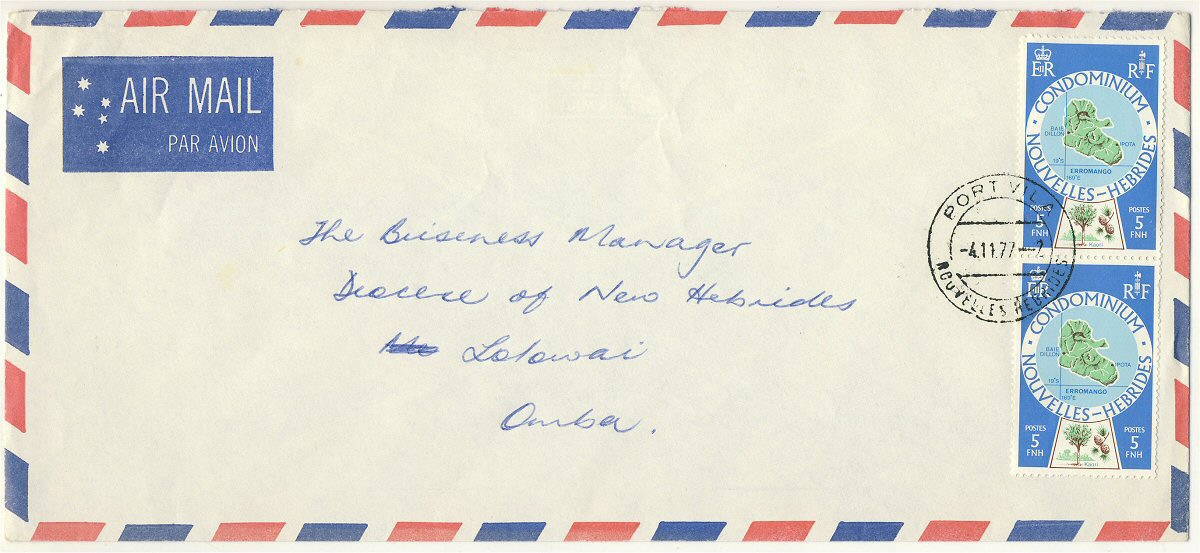 AIR MAIL
PAR AVION
The Business Manager
Diocese of New Hebrides
Lolowai
Omba.
EIIR RF
CONDOMINIUM
NOUVELLES-HEBRIDES
BAIE
DILLON
IPOTA
19°S
ERROMANGO
169°E
POSTES
5
FNH
Kaori
POSTES
5
FNH
PORT VILA
-4.11.77-2
NOUVELLES HEBRIDES
EIIR RF
CONDOMINIUM
NOUVELLES-HEBRIDES
BAIE
DILLON
IPOTA
19°S
ERROMANGO
169°E
POSTES
5
FNH
Kaori
POSTES
5
FNH